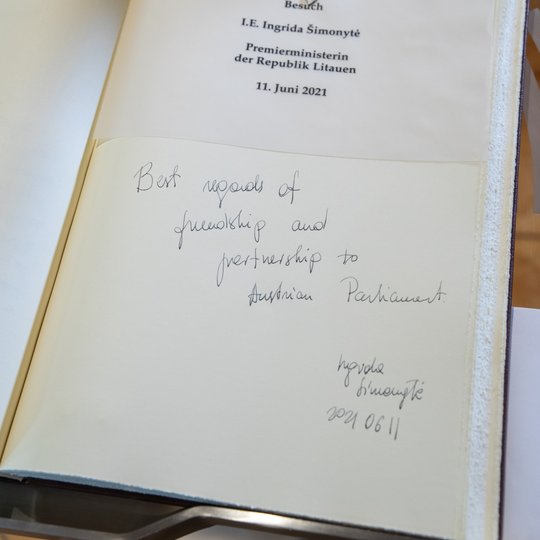 Besuch
I.E. Ingrida Šimonytė
Premierministerin
der Republik Litauen
11. Juni 2021
Best regards of
friendship and
partnership to
Austrian Parliament
Ingrida
Šimonytė
2021 06 11